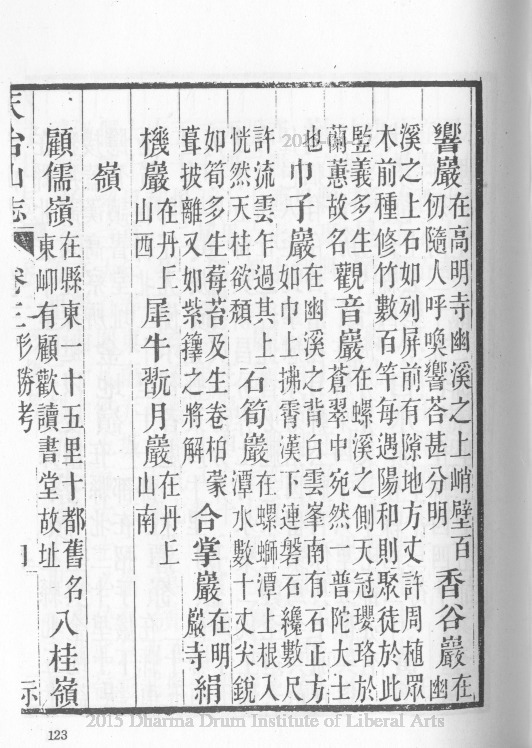 響巖在高明寺幽溪之上峭壁百仞隨人呼喚響荅甚分明香谷巖在幽
溪之上石如列屏前有隙地方丈許周植眾
木前種修竹數百竿每遇陽和則聚徒於此
監義多生蘭蕙故名觀音巖在螺溪之側天冠瓔珞於蒼翠中宛然一普陀大士
也巾子巖在幽溪之背白雲峯南有石正方如巾上拂霄漢下連磐石纔數尺
許流雲乍過其上恍然天柱欲頹石筍巖在螺螄潭上根入潭水數十丈尖銳
如筍多生莓苔及生卷柏蒙葺披離又如紫籜之將解合掌巖在明巖寺絹
機巖在丹丘山西犀牛翫月巖在丹丘山南
嶺
顧儒嶺在縣東一十五里十都舊名東㟁有顧歡讀書堂故址八桂嶺
天台山志 卷三 形勝考
123
2015 Dharma Drum Institute of Liberal Arts